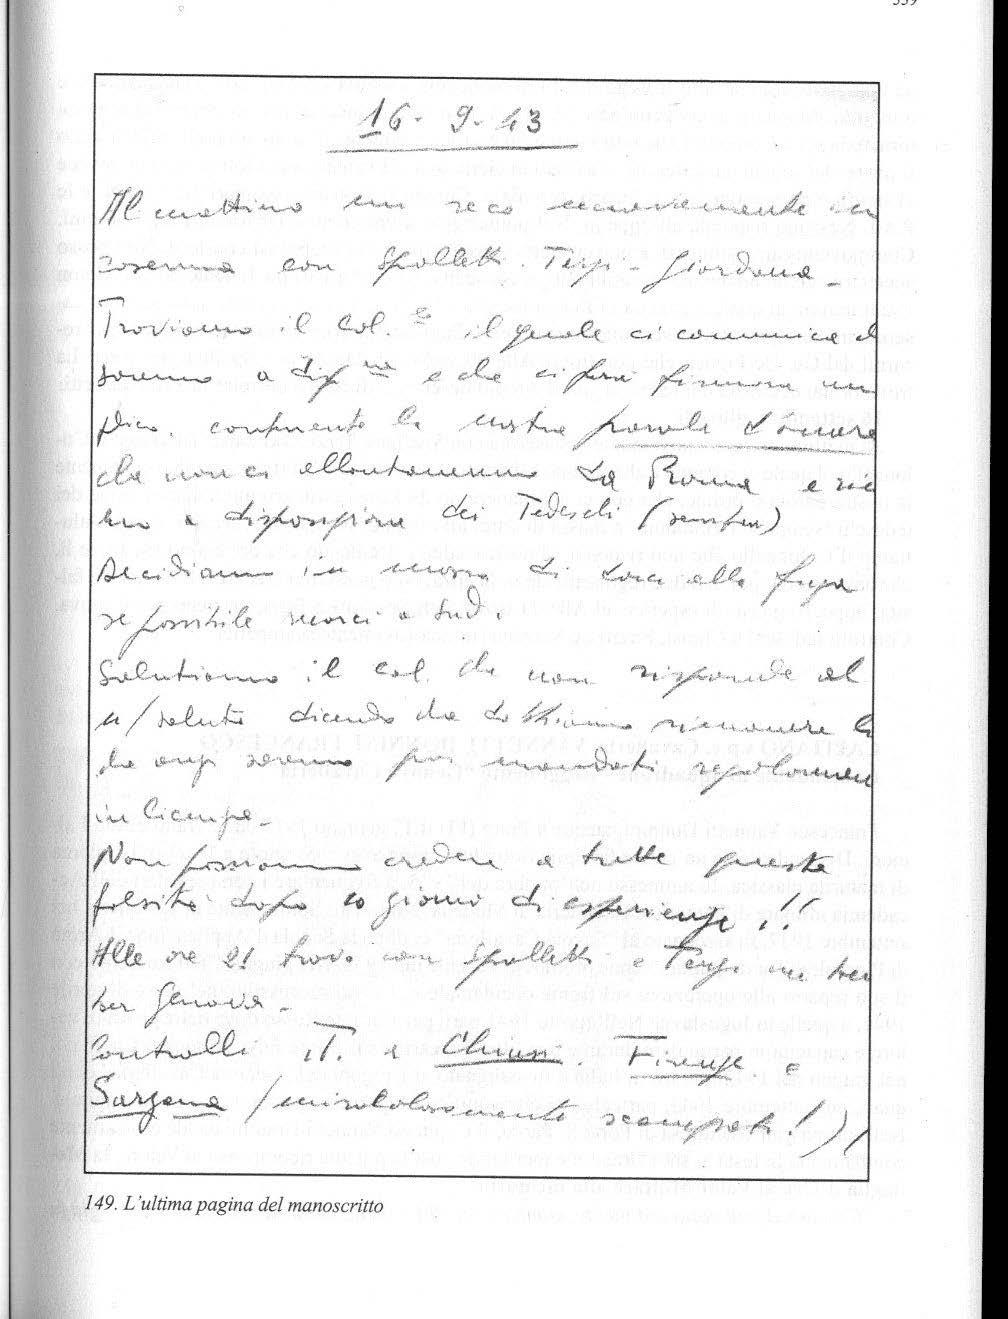 16-9-43
Al mattino mi reco nuovamente in
caserma con Spalletti Terzi - Giordana -
Troviamo il Col. il quale ci comunica
saremo a disp.ne e che ci fara firmare un
la nostra parola d'onore
che non ci allontaneremo da Roma e sia
mo a disposizione dei Tedeschi (sempre)
Decidiamo di darci alla fuga
se possibile recarci a Sud.
Salutiamo il col. che non risponde al
n/ saluto dicendo che dobbiamo rimanere
che anzi saremo poi mandati regolarmen
in licenza -
Non possiamo credere a tutte queste
falsità dopo 10 giorni di esperienze!!
Alle ore 21 trovo con Spalletti e Terzi
per Genova -
Controlli T. a Chiusi Firenze e
Sarzana (miracolosamente scampati!)
149. L'ultima pagina del manoscritto